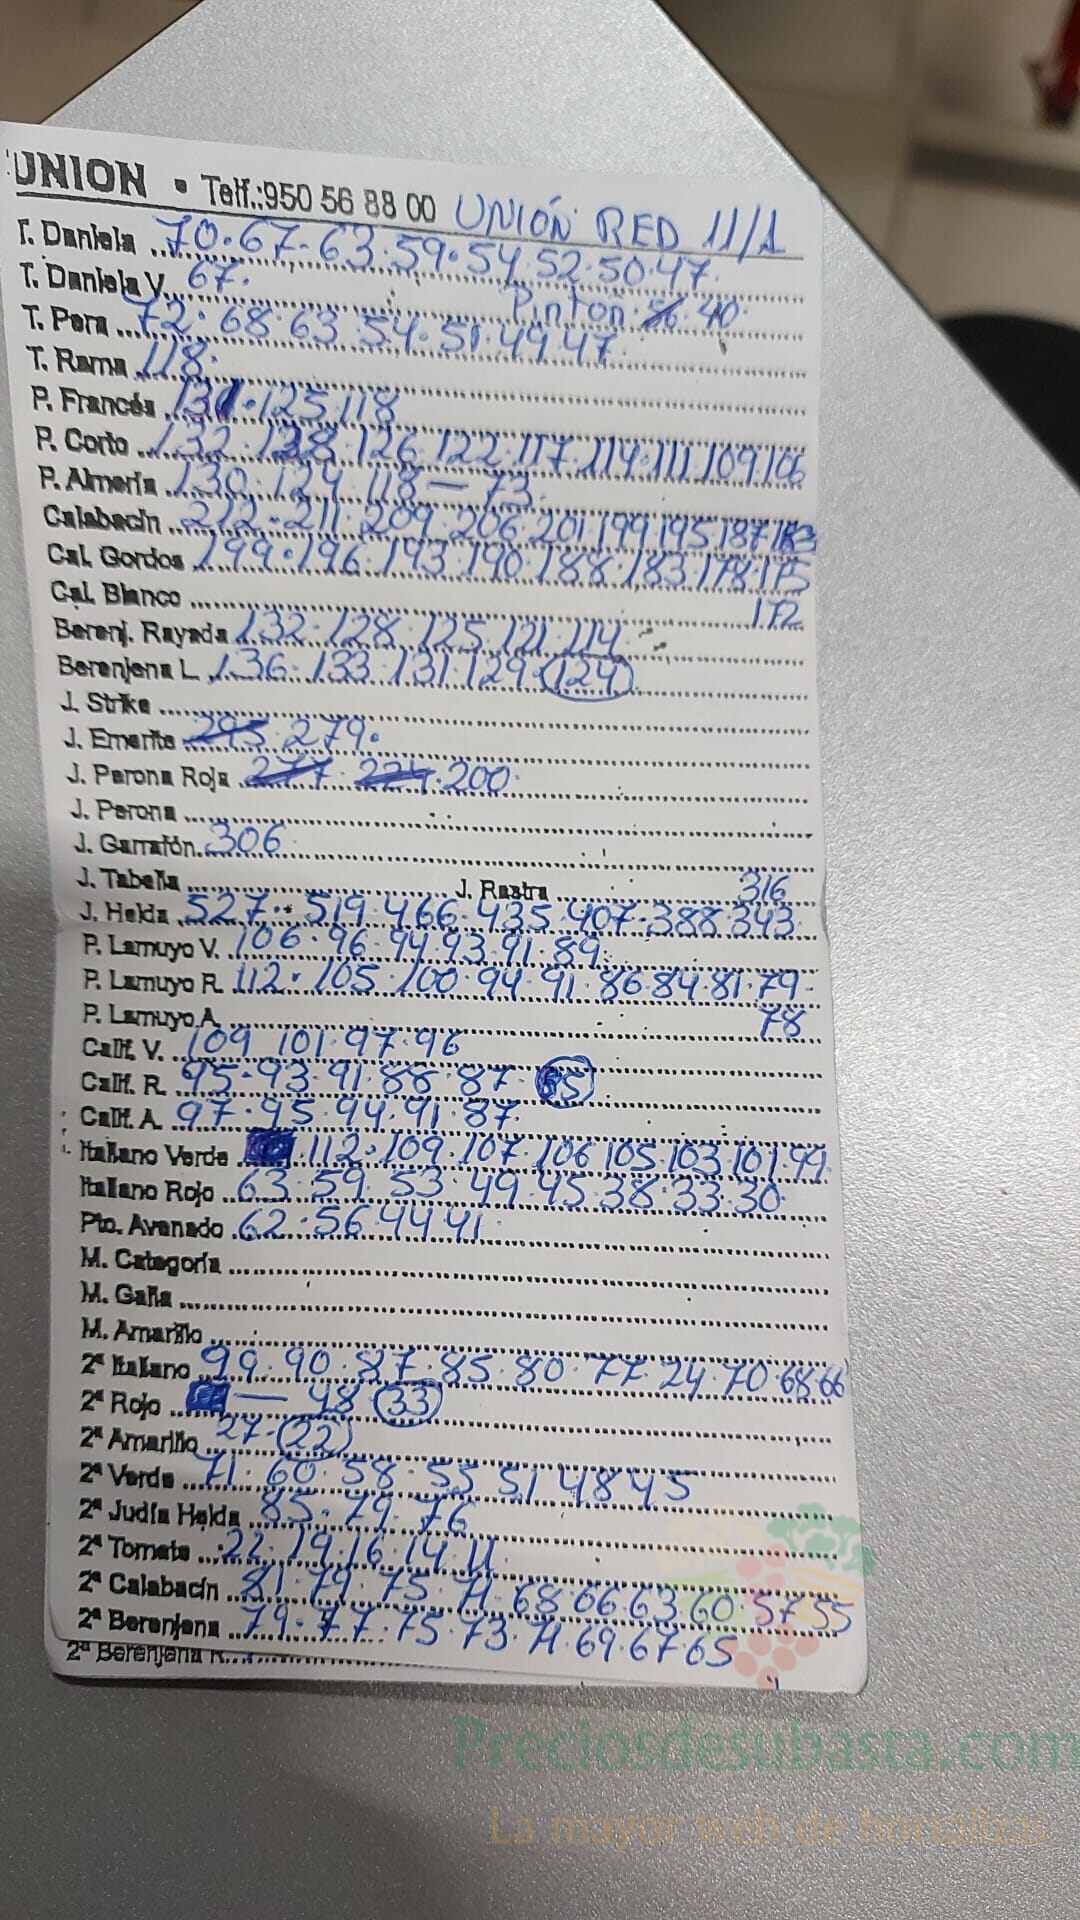 UNION • Telf.:950 56 88 00 UNIÓN RED 11/1
T. Daniela 70.67.63.59.54.52.50.47
T. Daniela V. 67.
Pinton 40.
T. Pera 72.68.63.54.51.49.47
T. Rama 118.
P. Francés 131.125.118
P. Corto 132.128.126.122.117.114.111.109.106
P. Almería 130.124.118—73.
Calabacín 212.211.209.206.201.199.195.187.183
Cal. Gordos 199.196.193.190.188.183.178.175
172
Cal. Blanco
Berenj. Rayada 132.128.125.121.114
Berenjena L. 136.133.131.129.(124)
J. Strike
J. Emerite 295 279.
J. Perona Roja 277. 224.200.
J. Perona
J. Garrafón 306
J. Tabella J. Rastra
316
J. Helda 527.519.466.435.407.388.343
P. Lamuyo V. 106.96.94.93.91.89.
P. Lamuyo R. 112.105.100.94.91.86.84.81.79.
78
P. Lamuyo A.
Calif. V. 109 101.97.96
Calif. R. 95.93.91.88.87.(85)
Calif. A. 97.95.94.91.87
Italiano Verde 112.109.107.106 105.103.101.99
Italiano Rojo 63.59.53.49.45.38.33.30.
Pto. Avanado 62.56.44.41.
M. Categoría
M. Galia
M. Amarillo
2ª Italiano 99.90.87.85.80.77.24.70.68.66
2ª Rojo — 48 (33)
2ª Amarillo 27.(22)
2ª Verde 71.60.58.55 51 48 45
2ª Judía Helda 85.79.76
2ª Tomate 22.19.16.14.11.
2ª Calabacín 81.79.75.71.68.66.63.60.57.55
2ª Berenjena 79.77.75.73.71.69.67.65
2ª Berenjena R.
Preciosdesubasta.com
La mayor web de hortalizas